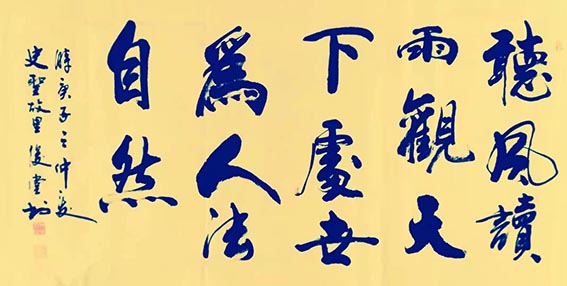 聽風讀
雨觀天
下處世
爲人法
自然
時庚子之仲夏
史聖故里俊堂書